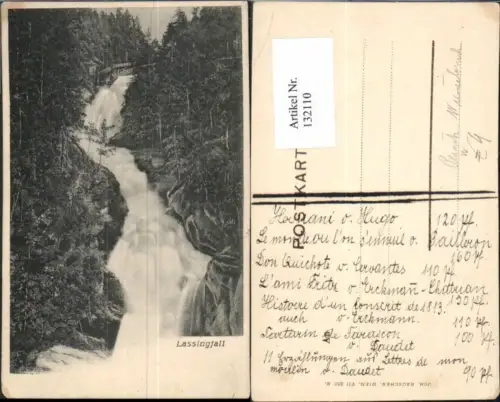 Lassingfall
Artikel Nr.
132110
POSTKART
Hernani v. Hugo 120 pf.
Le monde où l'on s'ennuie v. Pailleron
160 pf
Don Quichote v. Cervantes 110 pf
L'ami Fritz v. Erckmañ-Chatrian
Histoire d'un conscrit de 1813. 150 pf.
auch v. Erckmann. 110 pf
Tartarin de Tarascon 100 pf
v. Daudet
11 Erzählungen aus Lettres de mon
moulin v. Daudet 90 pf.